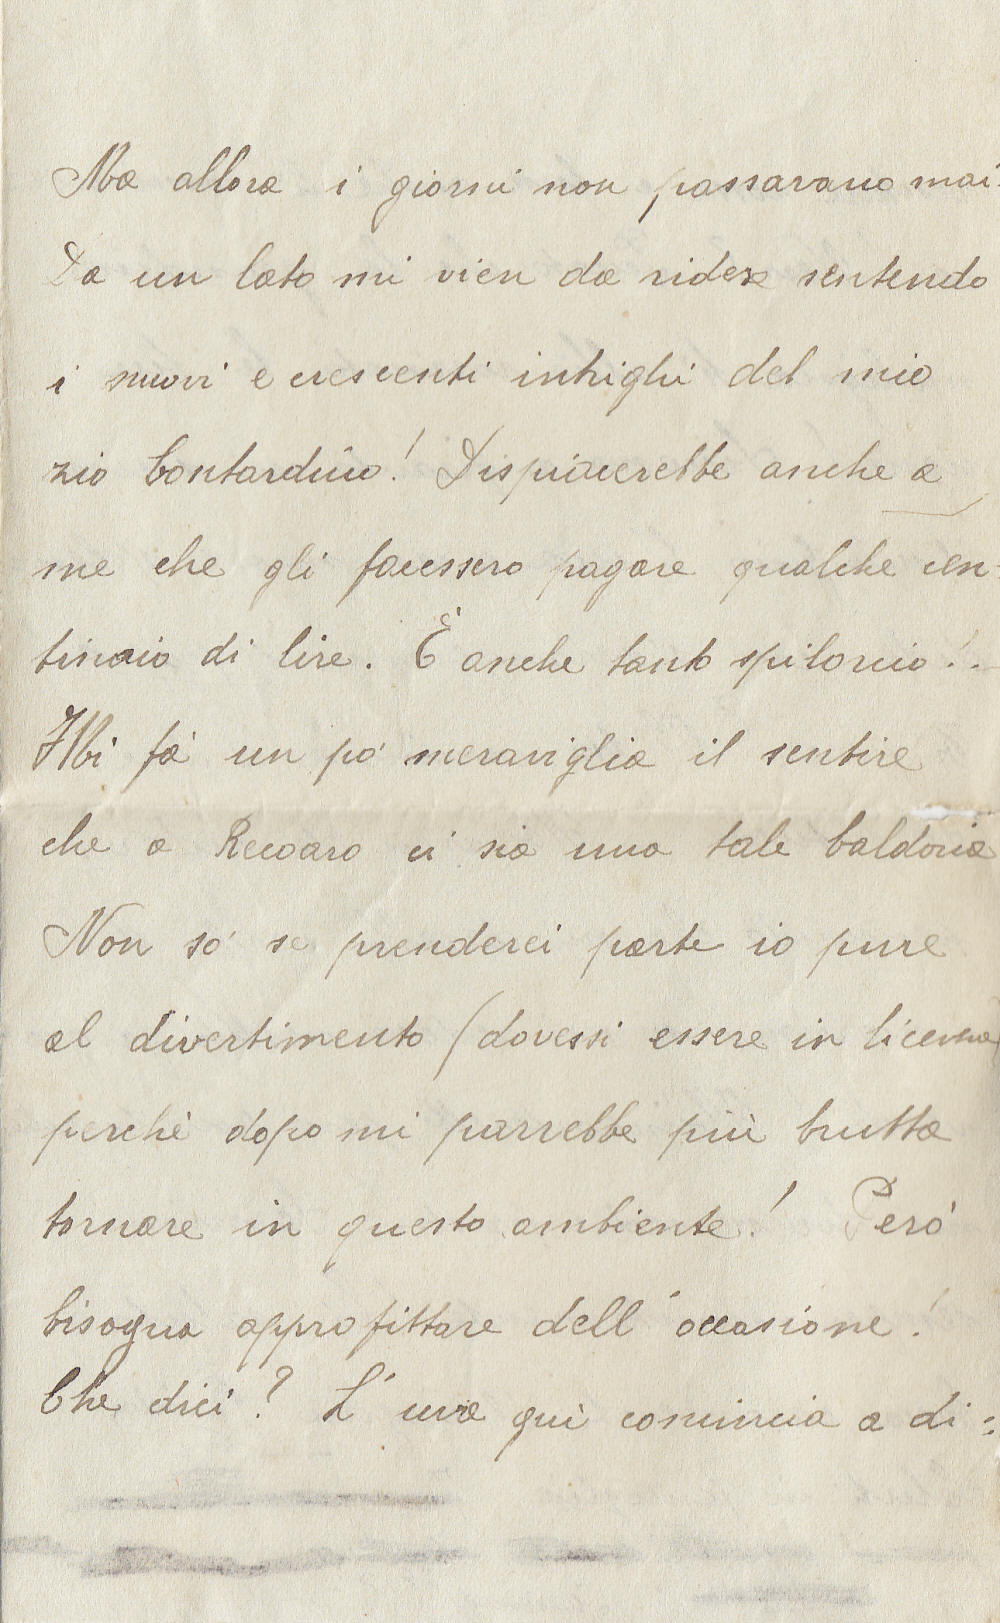 Ma allora i giorni non passarano mai.
Da un lato mi vien da ridere sentendo
i nuovi e crescenti intrighi del mio
zio Contardino! Dispiacerebbe anche a
me che gli facessero pagare qualche cen-
tinaio di lire. È anche tanto spilorcio!.
Mi fà un pó meraviglia il sentire
che a Recoaro ci sia una tale baldoria
Non só se prenderei parte io pure
al divertimento (dovessi essere in licenza)
perchè dopo mi parrebbe più brutta
tornare in questo ambiente! Peró
bisogna approfittare dell'occasione!
Che dici? L'uva quì comincia a di=